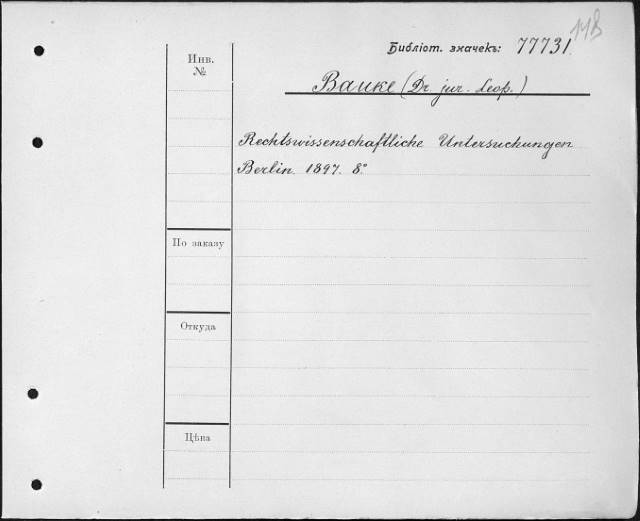 118
Библіот. значекъ: 77731.
Инв.
№
Bauke (Dr. jur. Leop.)
Rechtswissenschaftliche Untersuchungen
Berlin. 1897. 8°
По заказу
Откуда
Цѣна